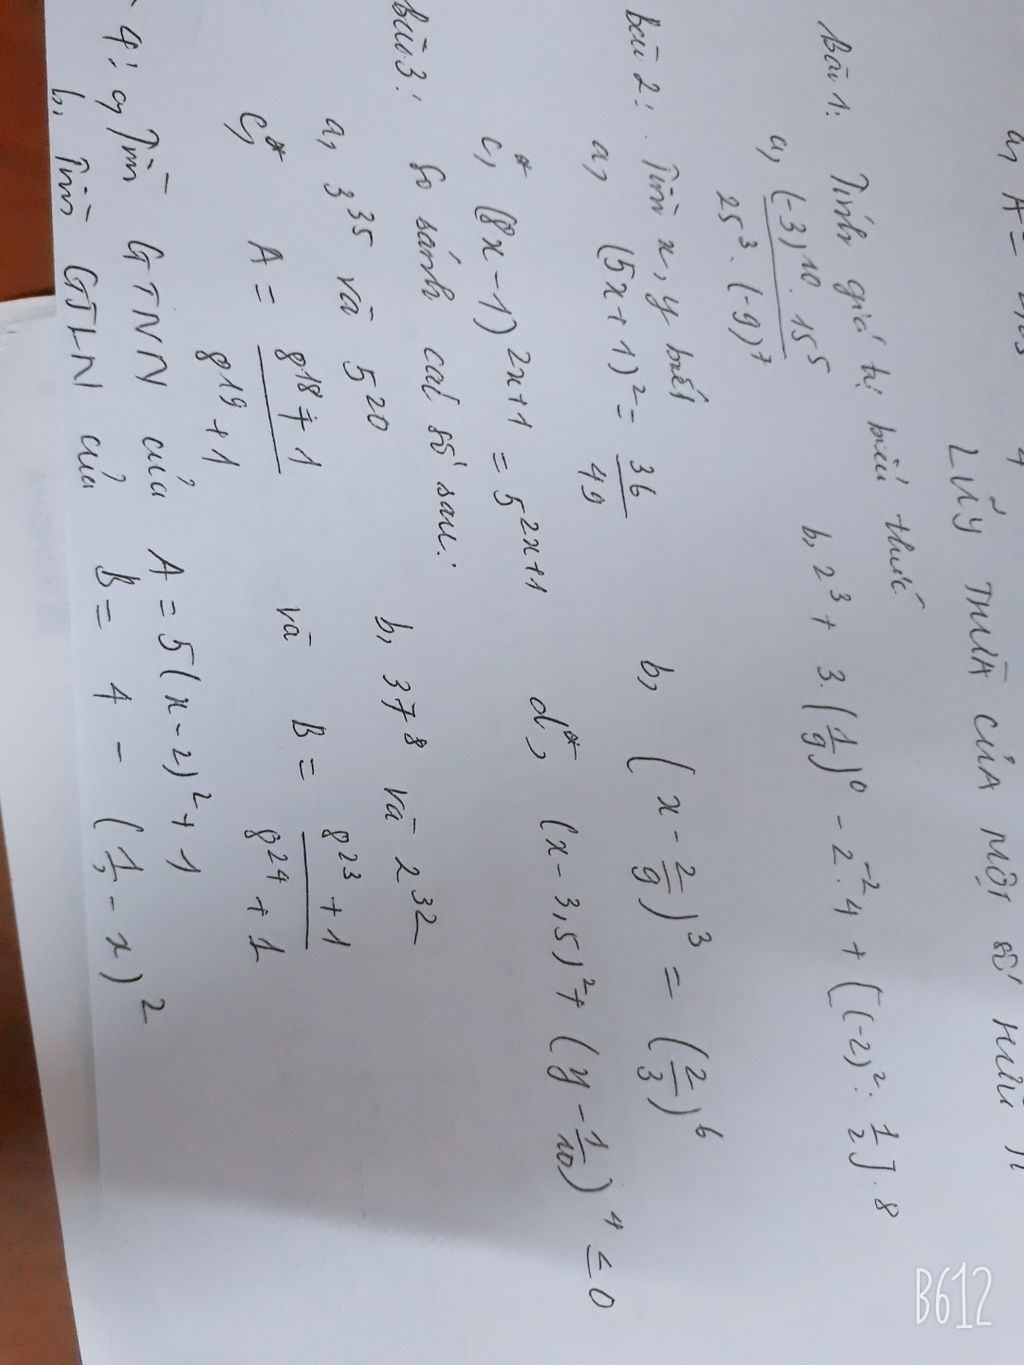 a, A =
4
LUỸ THỪA CỦA MỘT SỐ HỮU
Bài 1: Tính giá trị biểu thức
a, (-3)^10 . 15^5 / 25^3 . (-9)^7 b, 2^3 + 3.(1/9)^0 - 2^-2 . 4 + [(-2)^2 : 1/2] . 8
Bài 2: Tìm x, y biết
a, (5x + 1)^2 = 36/49 b, (x - 2/9)^3 = (2/3)^6
c,* (8x - 1)^2x+1 = 5^2x+1 d,* (x - 3,5)^2 + (y - 1/10)^4 ≤ 0
Bài 3: So sánh các số sau:
a, 3^35 và 5^20 b, 37^8 và 2^32
c,* A = 8^18 + 1 / 8^19 + 1 và B = 8^23 + 1 / 8^24 + 1
4: a, Tìm GTNN của A = 5(x - 2)^2 + 1
b, Tìm GTLN của B = 4 - ( - x)^2
B612